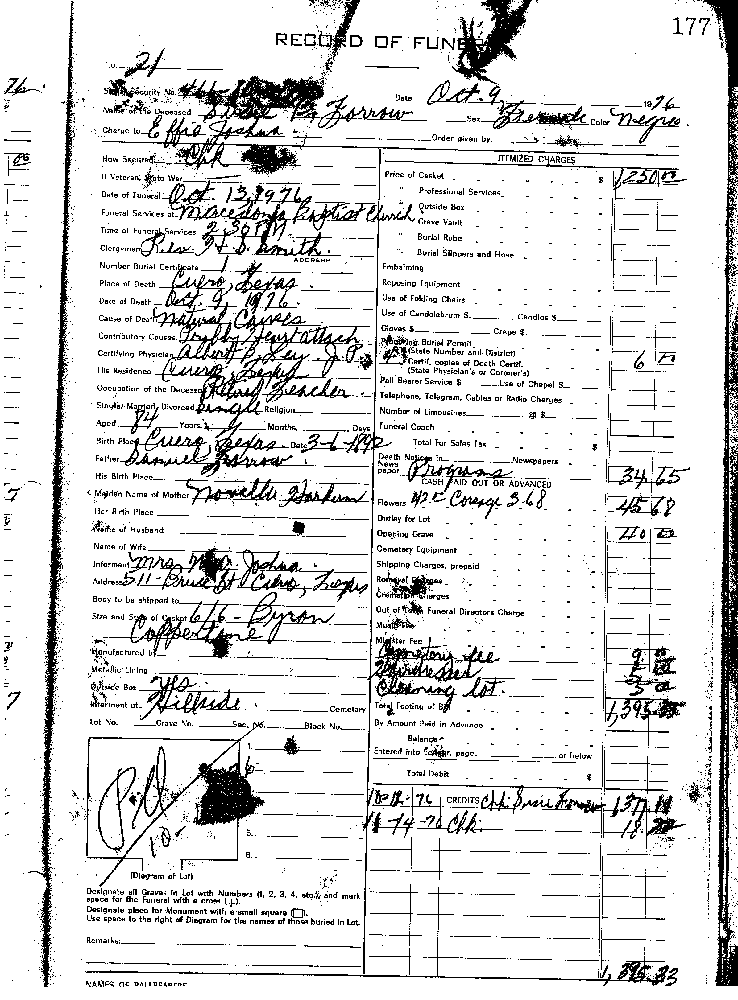 177
RECORD OF FUNE
21
Security No.
Date Oct. 9, 1976
Name of the Deceased Farrow Sex Female Color Negro
Charge to Effie Joshua Order given by
How Secured Chk
If Veteran, State War
Date of Funeral Oct 13, 1976
Funeral Services at Macedonia Baptist Church
Time of Funeral Services 2:30 P.M.
Clergyman Rev. H. S. Smith
ADDRESS
Number Burial Certificate 1
Place of Death Cuero, Texas
Date of Death Oct. 9, 1976
Cause of Death Natural Causes
Contributory Cause Heart attach
Certifying Physician Albert Ley J.P.
His Residence Cuero, Texas
Occupation of the Deceased Retired Teacher
Single-Married, Divorced Single Religion
Aged 84 Years 7 Months Days
Birth Place Cuero, Texas Date 3-6-1892
Father Samuel Farrow
His Birth Place
Maiden Name of Mother
Her Birth Place
Name of Husband
Name of Wife
Informant Mrs. Joshua
Address 511 Cuero, Texas
Body to be shipped to
Size and Style of Casket 6/6 - Byron
Coppertone
Manufactured by
Metallic Lining
Outside Box yes
Interment at Hillside Cemetery
Lot No. Grave No. Sec. No. Block No.
Pd
10-
1.
5.
6.
(Diagram of Lot)
Designate all Graves in Lot with Numbers (1, 2, 3, 4, etc.) and mark
space for the Funeral with a cross (+).
Designate place for Monument with a small square.
Use space to the right of Diagram for the names of those buried in Lot.
Remarks:
NAMES OF PALLBEARERS
ITEMIZED CHARGES
Price of Casket $ 1250 00
" Professional Services
" Outside Box
" Grave Vault
" Burial Robe
" Burial Slippers and Hose
Embalming
Reposing Equipment
Use of Folding Chairs
Use of Candelabrum $ Candles $
Gloves $ Crepe $
Burial Permit
(State Number and District)
Certif. copies of Death Certif. 6 00
(State Physician's or Coroner's)
Pall Bearer Service $ Use of Chapel $
Telephone, Telegram, Cables or Radio Charges
Number of Limousines @ $
Funeral Coach
Total For Sales Tax $
Death Notices in Newspapers
News paper Programs 34 65
CASH PAID OUT OR ADVANCED
Flowers Corsage 3.68 45 68
Outlay for Lot
Opening Grave 40 00
Cemetery Equipment
Shipping Charges, prepaid
Removal Charges
Cremation Charges
Out of Town Funeral Directors Charge
Music Fee
Minister Fee
Cemetery fee
Hairdresser
Cleaning lot.
Total Footing of Bill 1,395
By Amount Paid in Advance
Balance
Entered into Ledger, page or below
Total Debit $
CREDITS
11-14-76 Chk. 18
1,395.33